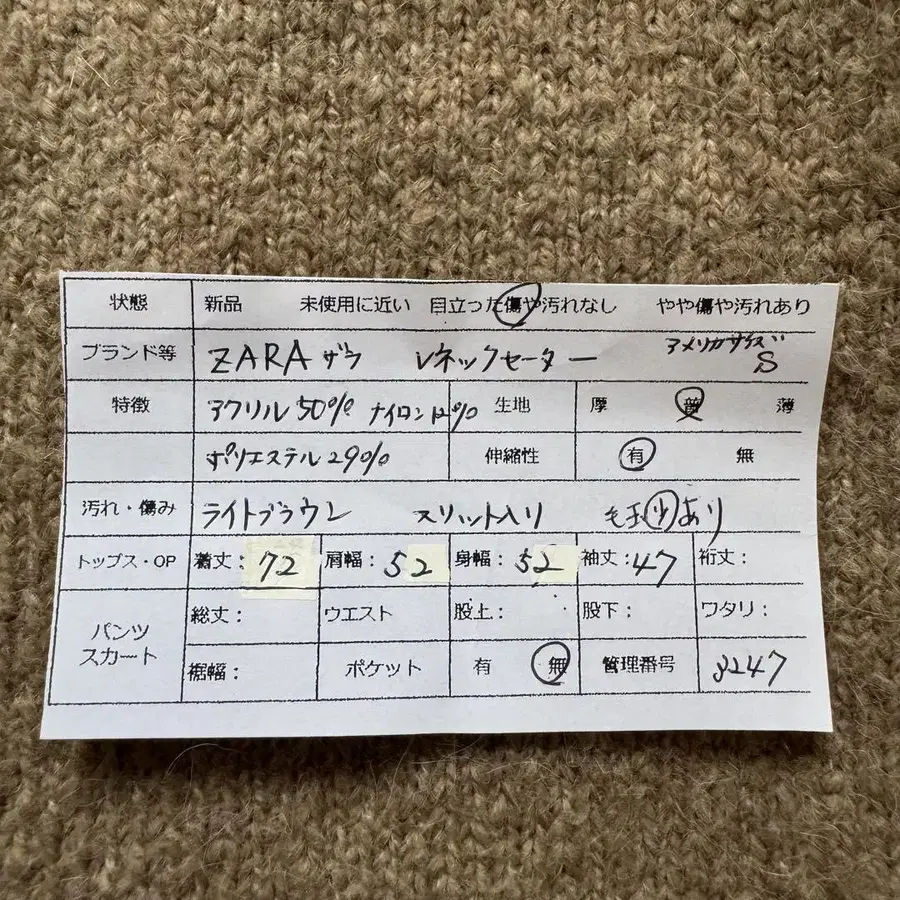 状態 新品 未使用に近い 目立った傷や汚れなし やや傷や汚れあり
ブランド等 ZARA ザラ Vネックセーター アメリカサイズ S
特徴 アクリル50% ナイロン12% 生地 厚 普 薄
ポリエステル29% 伸縮性 有 無
汚れ・傷み ライトブラウン スリット入り 毛玉少あり
トップス・OP 着丈:72 肩幅:52 身幅:52 袖丈:47 裄丈:
パンツ スカート 総丈: ウエスト 股上: 股下: ワタリ:
裾幅: ポケット 有 無 管理番号 3247